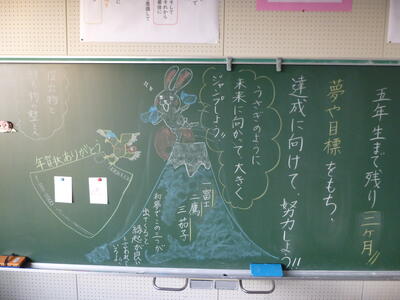 五年生まで残り二ヶ月!!
夢や目標をもち、
達成に向けて、努力しよう!!
うさぎのように
未来に向かって、大きく
ジャンプしよう。
一富士
二鷹
三茄子
初夢でこの三つが
出てくると
縁起が良い
年賀状ありがとう